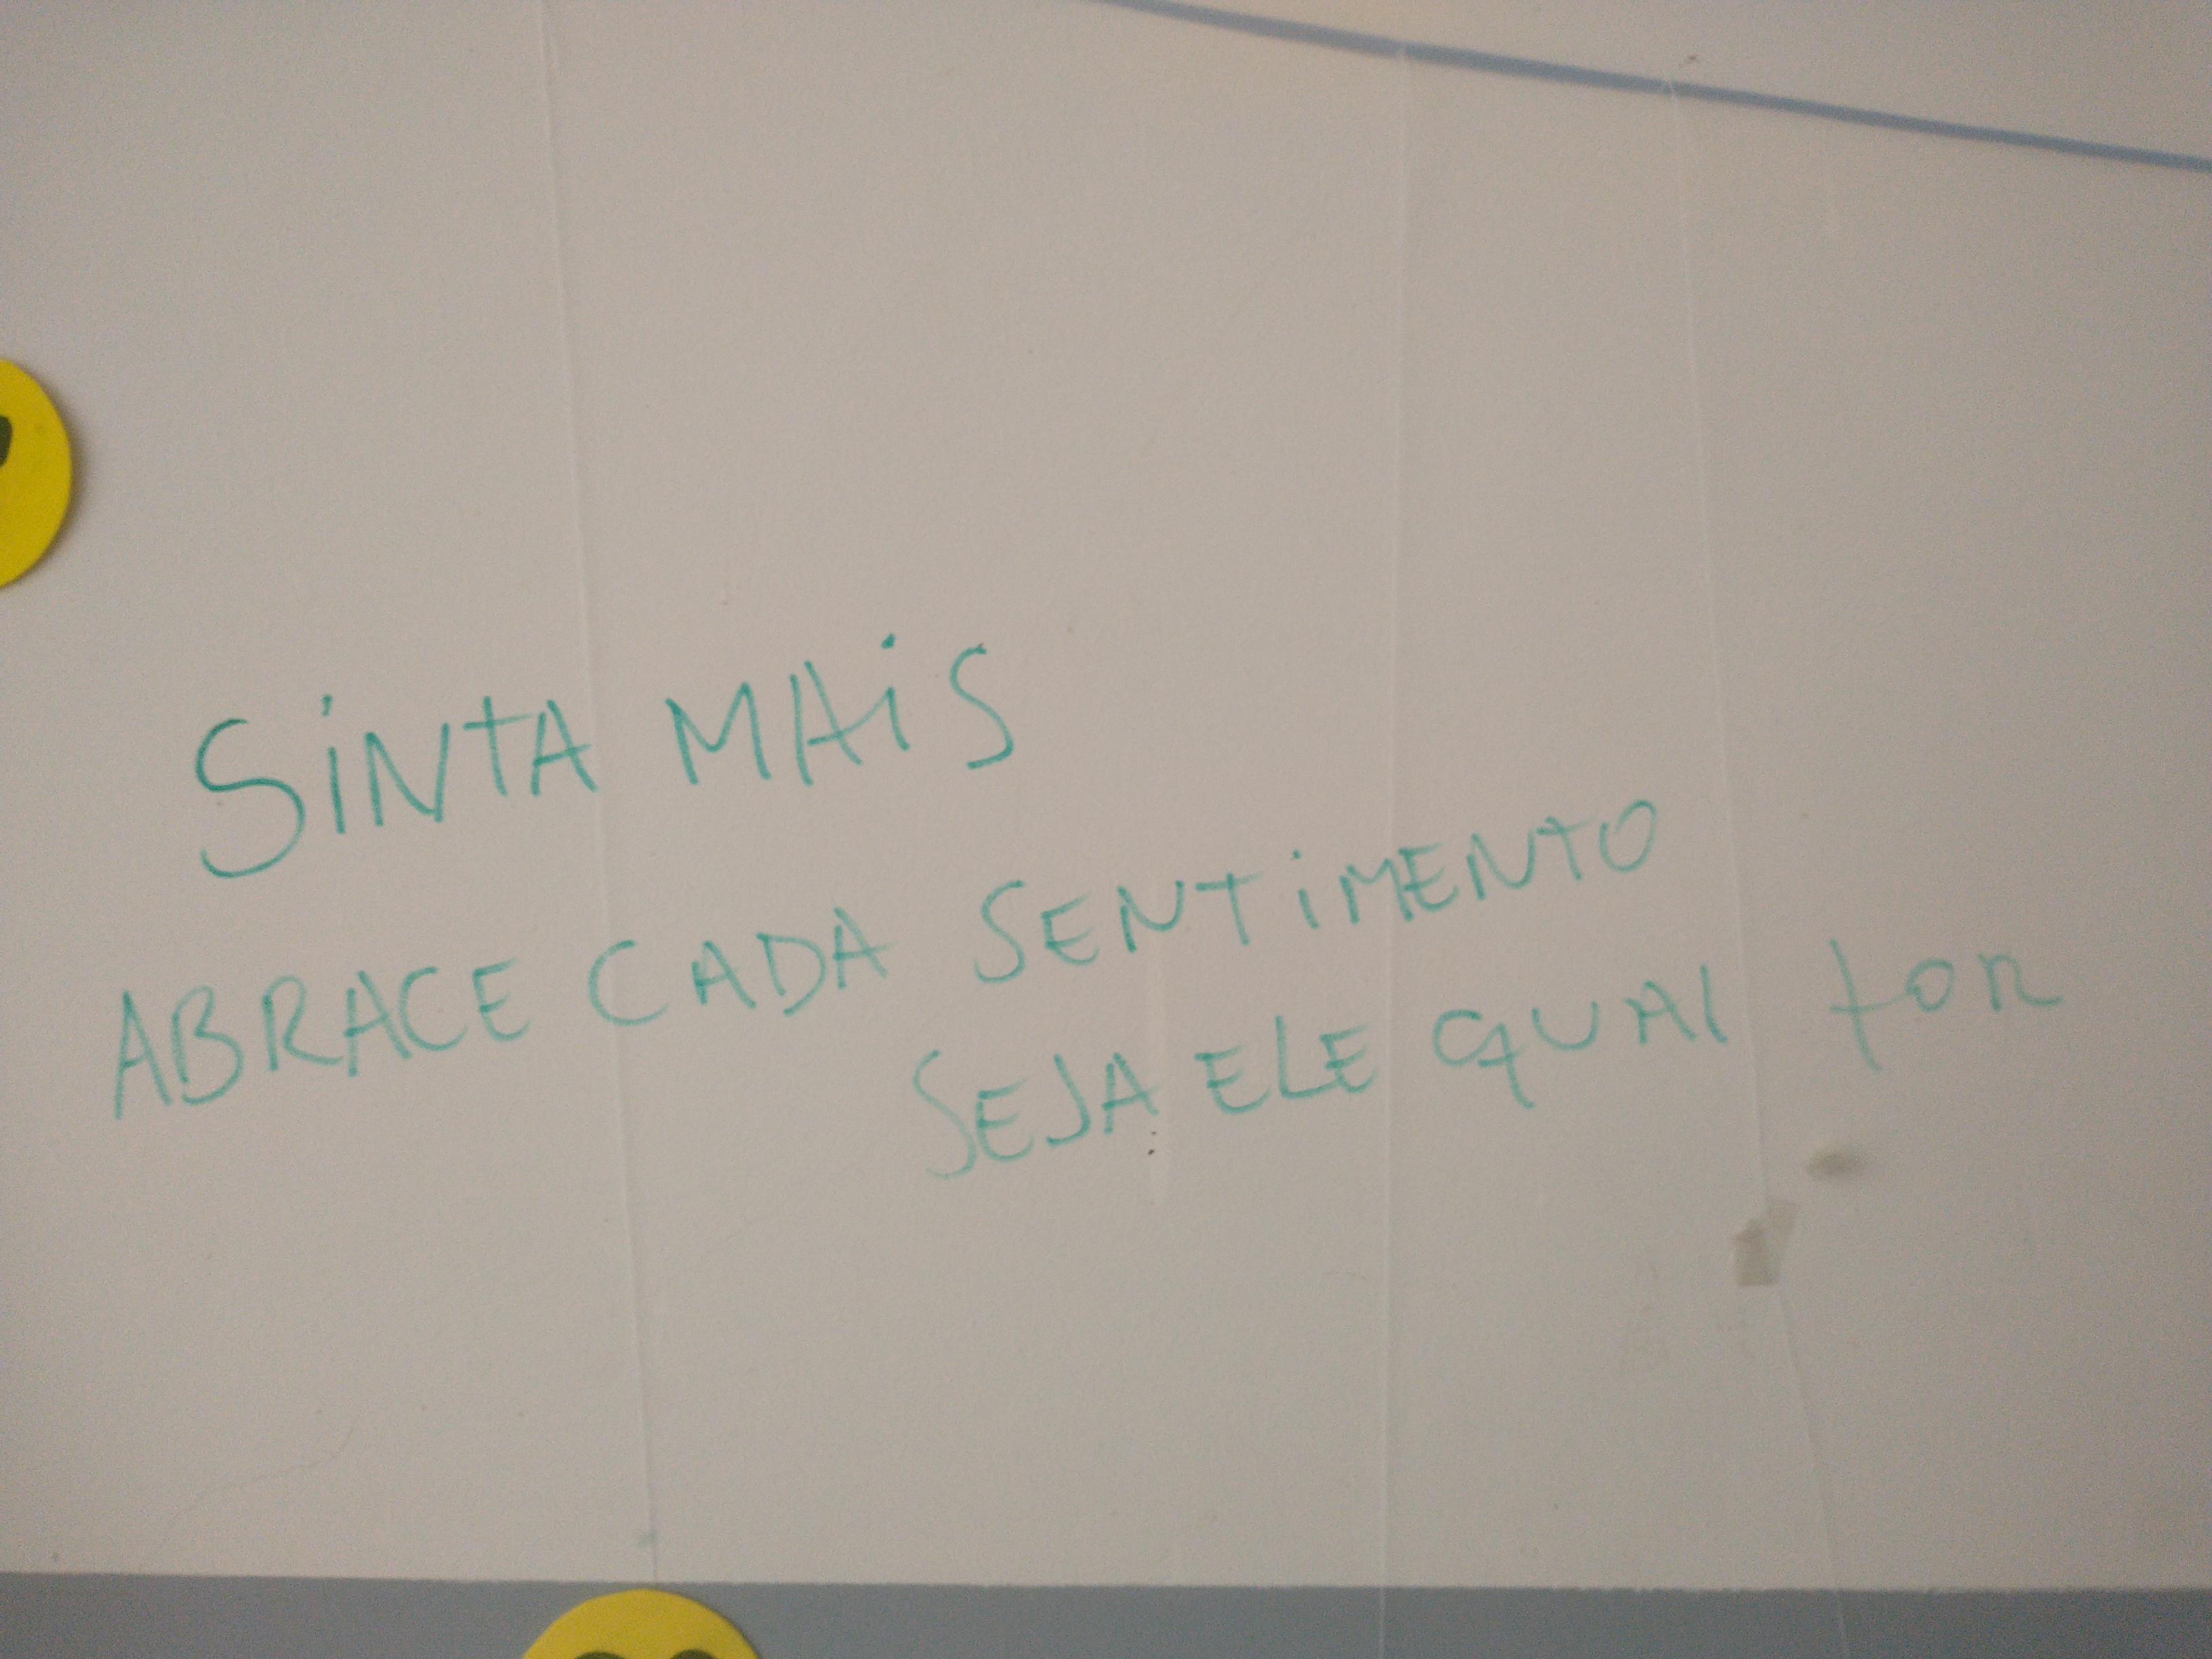 SINTA MAIS
ABRACE CADA SENTIMENTO
SEJA ELE QUAL for